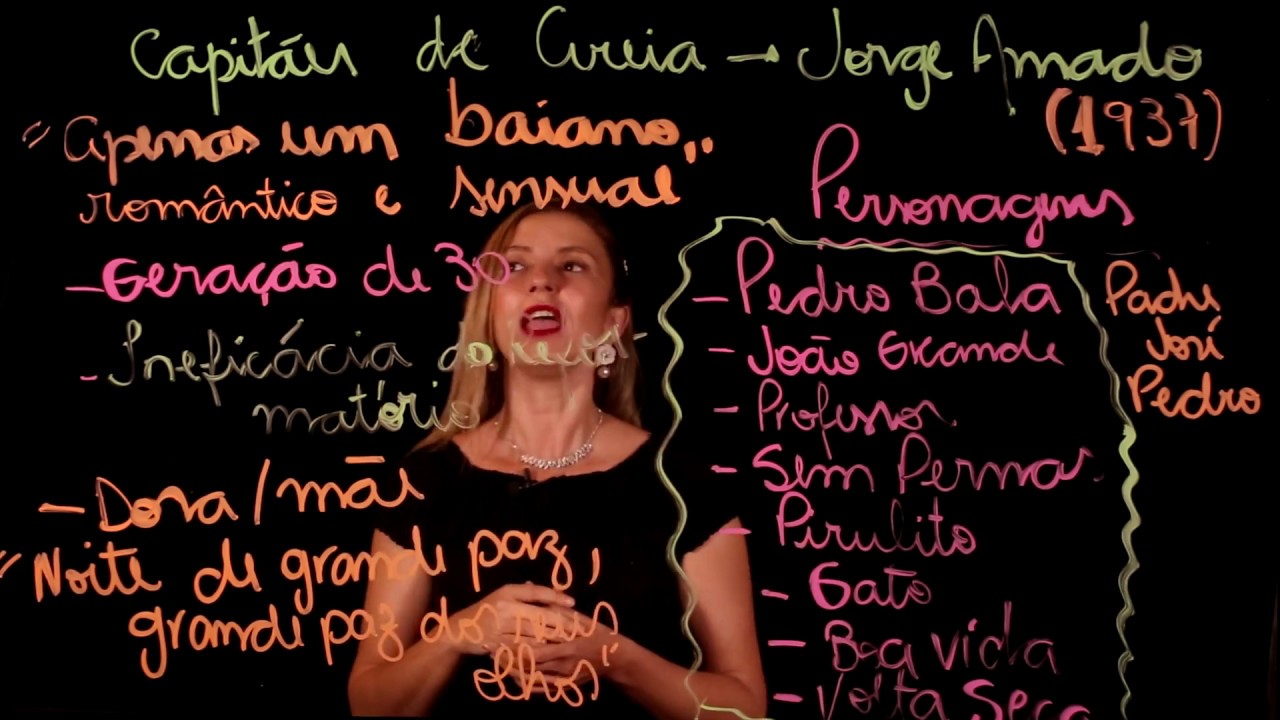 Capitães de Areia → Jorge Amado
(1937)
"Apenas um baiano,
romântico e sensual"
- Geração de 30
- Ineficácia do refor-
matório
- Dora/mãe
"Noite de grande paz,
grande paz dos meus
olhos"
Personagens
- Pedro Bala
- João Grande
- Professor
- Sem Pernas
- Pirulito
- Gato
- Boa vida
- Volta Seca
Padre
José
Pedro